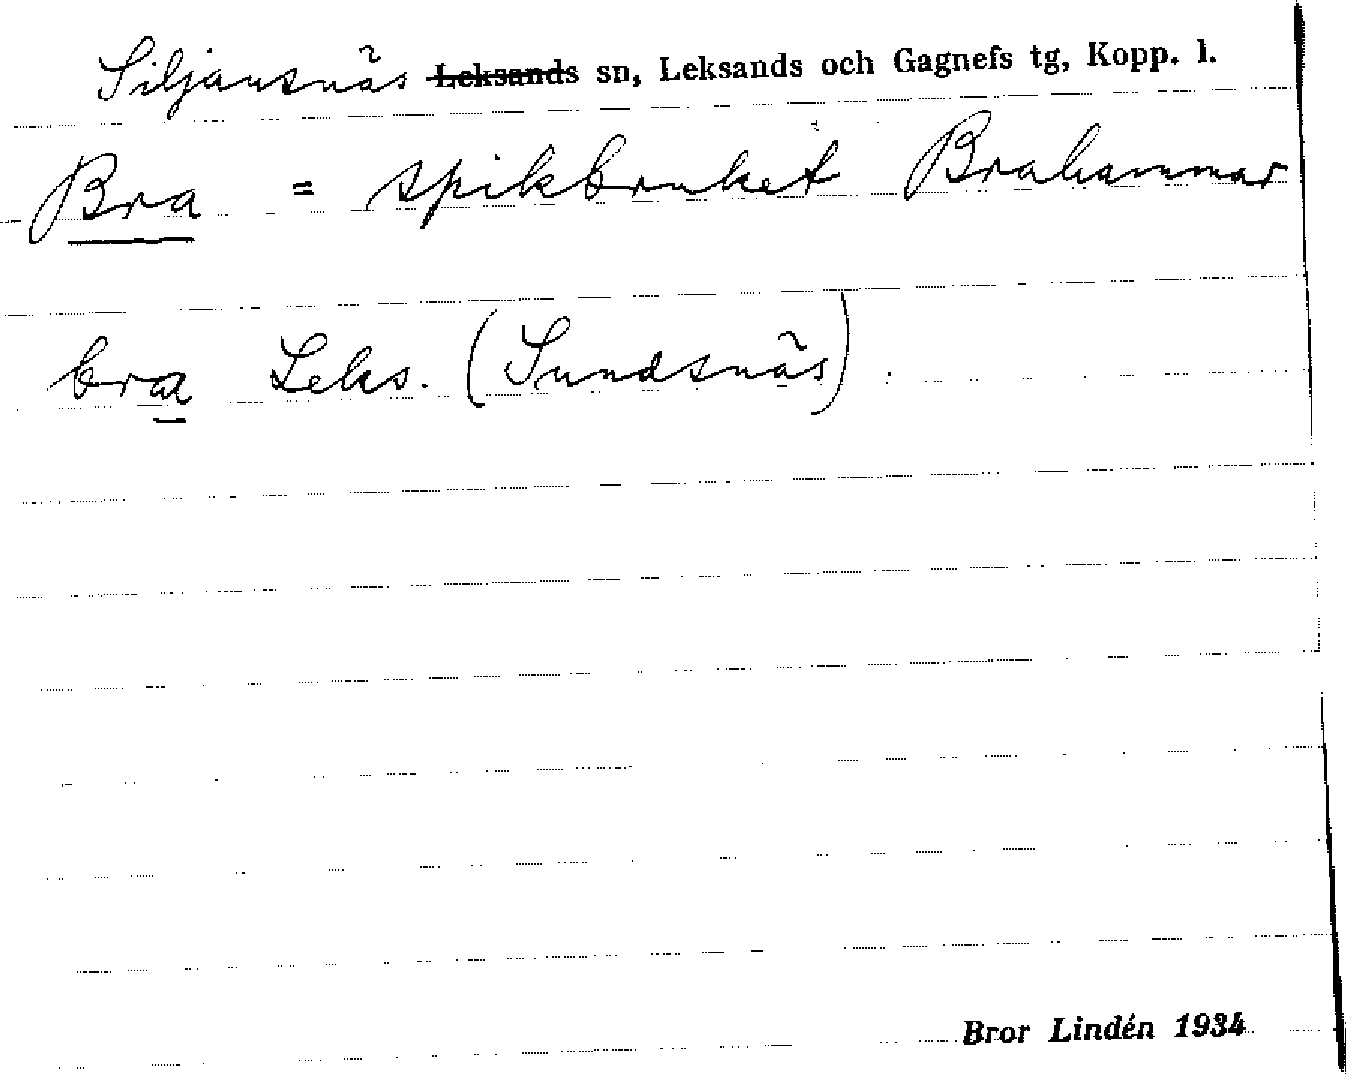 Siljansnäs Leksands sn, Leksands och Gagnefs tg, Kopp. l.
Bra = spikbruket Brahammar
bra Leks. (Sundsnäs).
Bror Lindén 1934